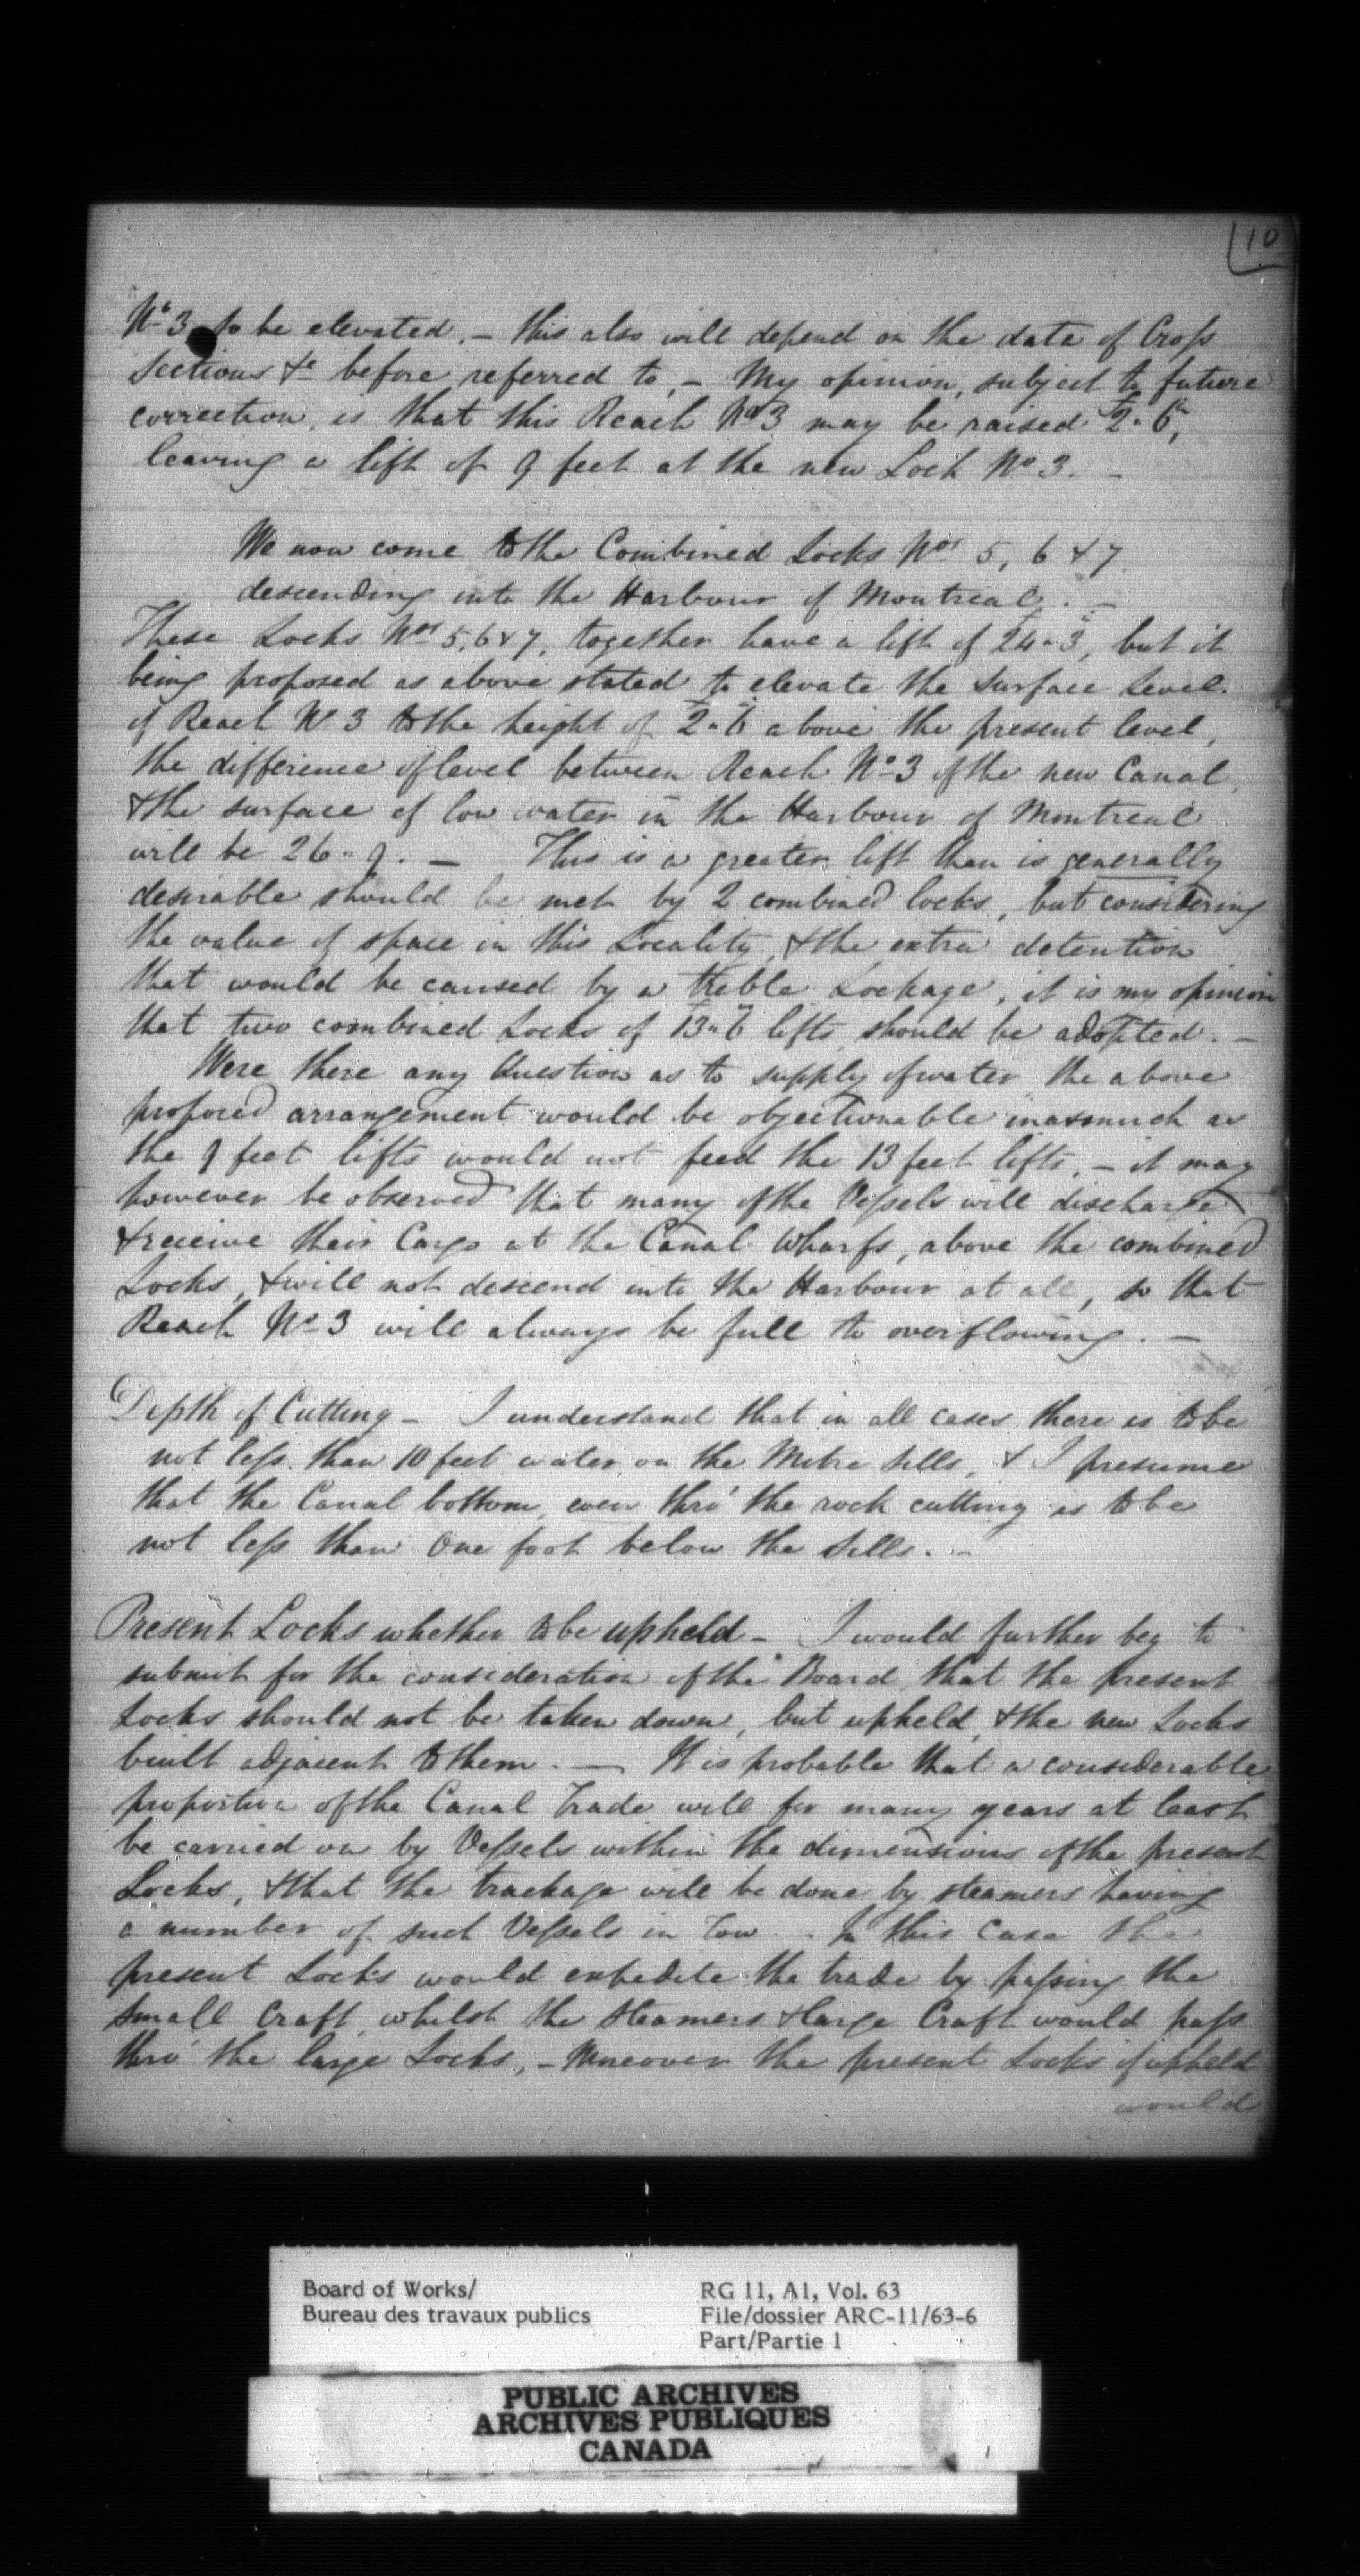 10
No 3 to be elevated. – this also will depend on the data of Cross
Sections &c before referred to, – My opinion, subject to future
correction, is that this Reach No 3 may be raised 2f.6in,
leaving a lift of 9 feet at the new Lock No 3. –
We now come to the Combined Locks Nos 5, 6 & 7
descending into the Harbour of Montreal. –
These Locks Nos 5, 6 & 7, together have a lift of 24f.3in, but it
being proposed as above stated to elevate the surface level
of Reach No 3 to the height of 2f.6in above the present level,
the difference of level between Reach No 3 of the new Canal,
& the surface of low water in the Harbour of Montreal
will be 26.9. – This is a greater lift than is generally
desirable should be met by 2 combined locks, but considering
the value of space in this Locality, & the extra detention
that would be caused by a treble Lockage, it is my opinion
that two combined Locks of 13f.6in lifts should be adopted. –
Were there any Question as to supply of water the above
proposed arrangement would be objectionable inasmuch as
the 9 feet lifts would not feed the 13 feet lifts, – it may
however be observed that many of the Vessels will discharge
& receive their Cargo at the Canal Wharfs, above the combined
Locks, & will not descend into the Harbour at all, so that
Reach No 3 will always be full to overflowing. –
Depth of Cutting – I understand that in all cases there is to be
not less than 10 feet water on the Mitre Sills, & I presume
that the Canal bottom, even thro' the rock cutting is to be
not less than One foot below the Sills. –
Present Locks whether to be upheld – I would further beg to
submit for the consideration of the Board, that the present
Locks should not be taken down, but upheld, & the new Locks
built adjacent to them. – It is probable that a considerable
proportion of the Canal Trade will for many years at least
be carried on by Vessels within the dimensions of the present
Locks, & that the trackage will be done by steamers having
a number of such Vessels in Tow. – In this Case the
present Locks would expedite the trade by passing the
small Craft, whilst the Steamers & large Craft would pass
thro' the large Locks, – Moreover the present Locks if upheld
would
Board of Works/
Bureau des travaux publics
RG 11, A1, Vol. 63
File/dossier ARC-11/63-6
Part/Partie 1
PUBLIC ARCHIVES
ARCHIVES PUBLIQUES
CANADA